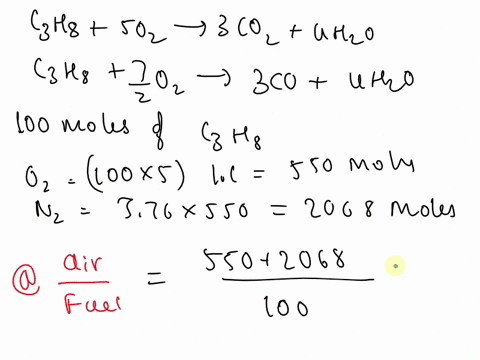 C3H8 + 5O2 → 3CO2 + 4H2O
C3H8 + 7/2 O2 → 3CO + 4H2O
100 moles of C3H8
O2 = (100×5) 1.1 = 550 moles
N2 = 3.76×550 = 2068 moles
@ air/Fuel = 550+2068/100